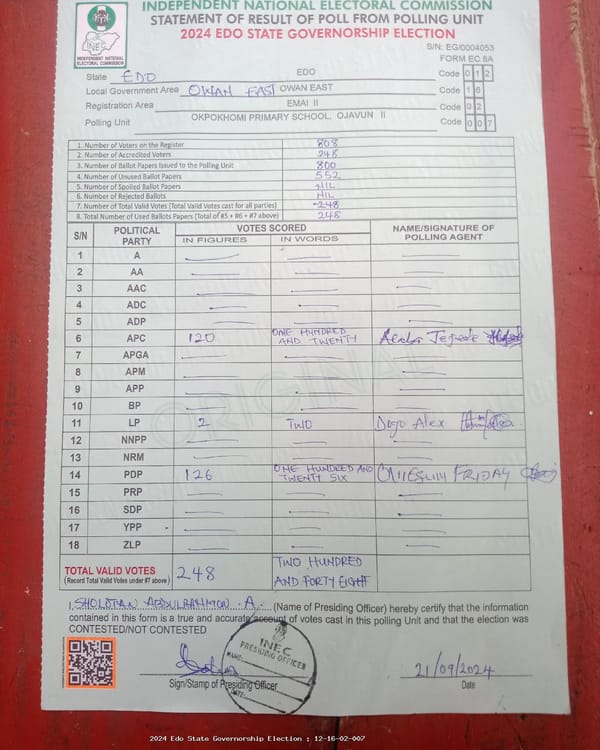 INDEPENDENT NATIONAL ELECTORAL COMMISSION
STATEMENT OF RESULT OF POLL FROM POLLING UNIT
2024 EDO STATE GOVERNORSHIP ELECTION
INEC
INDEPENDENT NATIONAL ELECTORAL COMMISSION
S/N: EG/0004053
FORM EC 8A
State EDO EDO Code 0 1 2
Local Government Area OWAN EAST OWAN EAST Code 1 6
Registration Area EMAI II Code 0 2
Polling Unit OKPOKHOMI PRIMARY SCHOOL, OJAVUN II Code 0 0 7
1. Number of Voters on the Register 808
2. Number of Accredited Voters 248
3. Number of Ballot Papers Issued to the Polling Unit 800
4. Number of Unused Ballot Papers 552
5. Number of Spoiled Ballot Papers NIL
6. Number of Rejected Ballots NIL
7. Number of Total Valid Votes (Total Valid Votes cast for all parties) 248
8. Total Number of Used Ballots Papers (Total of #5 + #6 + #7 above) 248
S/N POLITICAL PARTY VOTES SCORED NAME/SIGNATURE OF POLLING AGENT
IN FIGURES IN WORDS
1 A
2 AA
3 AAC
4 ADC
5 ADP
6 APC 120 ONE HUNDRED AND TWENTY
7 APGA
8 APM
9 APP
10 BP
11 LP 2 TWO Dogo Alex
12 NNPP
13 NRM
14 PDP 126 ONE HUNDRED AND TWENTY SIX FRIDAY
15 PRP
16 SDP
17 YPP
18 ZLP
ORIGINAL
TOTAL VALID VOTES 248 TWO HUNDRED AND FORTY EIGHT
(Record Total Valid Votes under #7 above)
I, ABDULRAHMON A. (Name of Presiding Officer) hereby certify that the information
contained in this form is a true and accurate account of votes cast in this polling Unit and that the election was
CONTESTED/NOT CONTESTED
INEC
PRESIDING OFFICER
NAME:
DATE:
21/09/2024
Sign/Stamp of Presiding Officer Date
2024 Edo State Governorship Election : 12-16-02-007